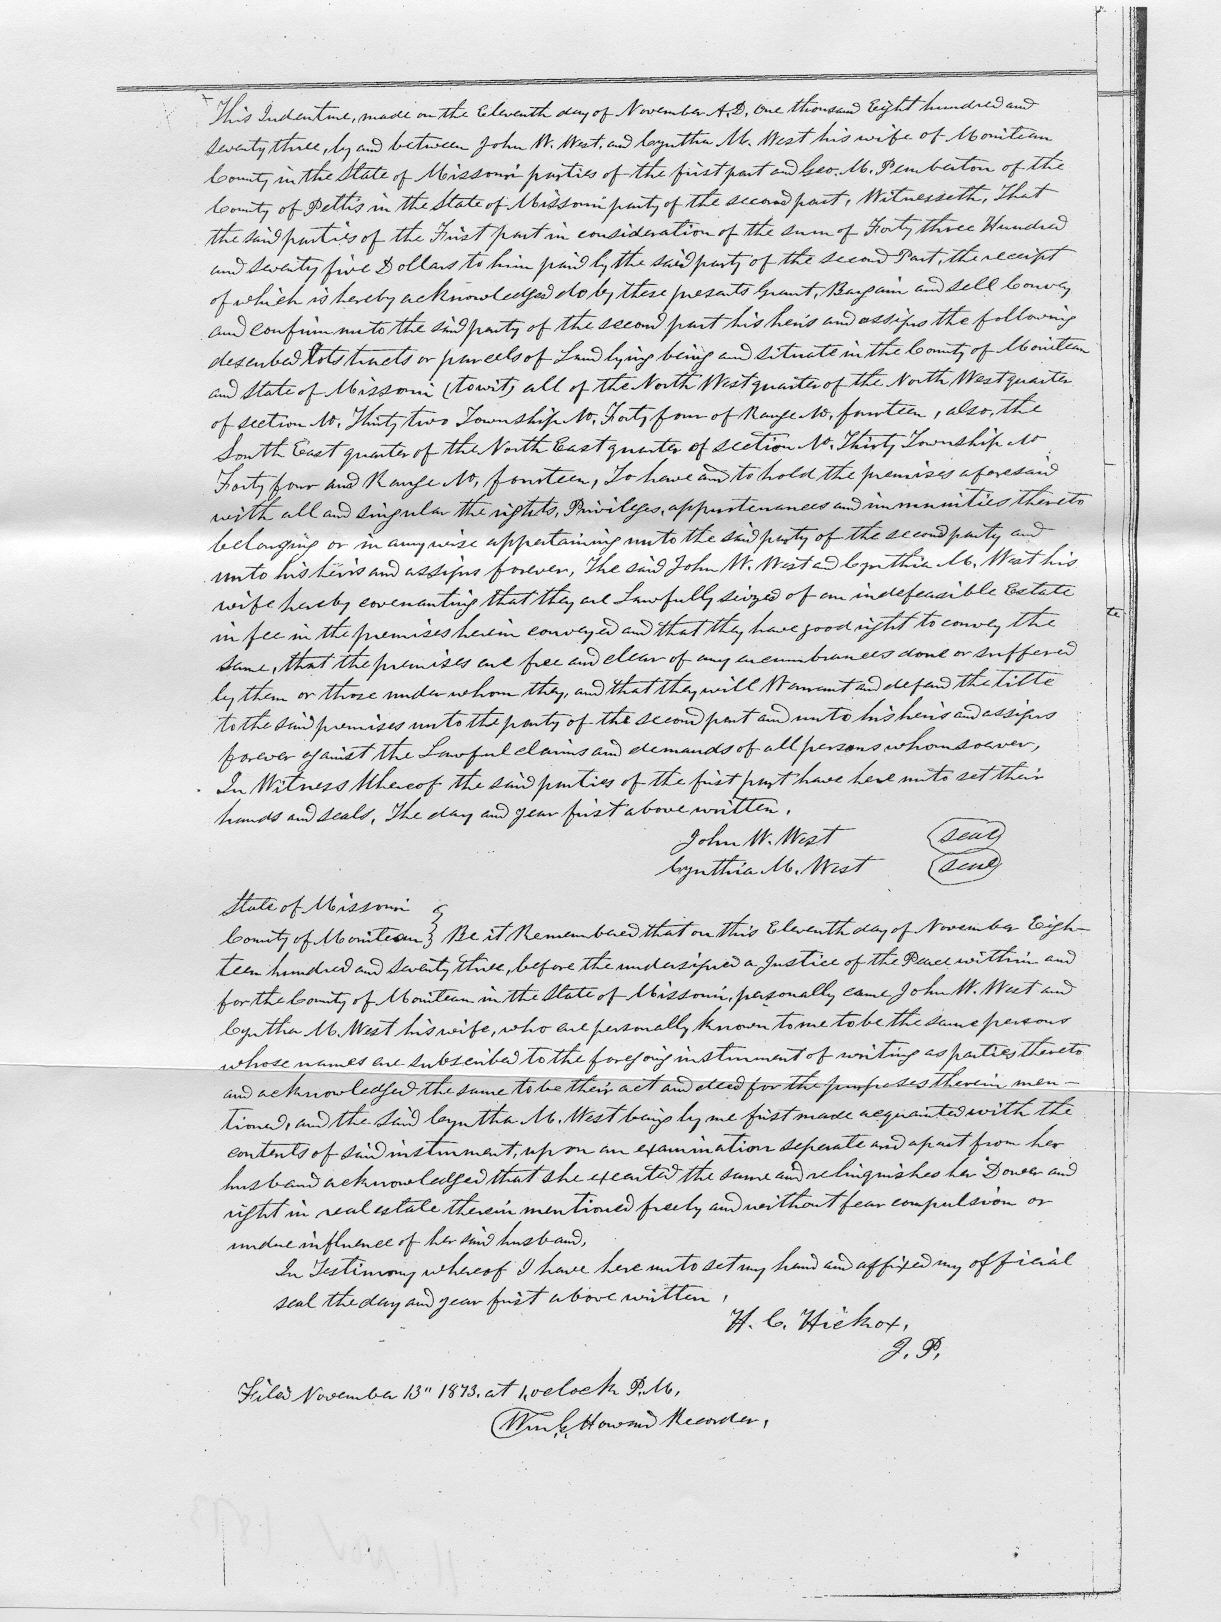 This Indenture, made on the Eleventh day of November A.D. One thousand Eight hundred and
seventy three, by and between John W. West, and Cynthia M. West his wife of Moniteau
County in the State of Missouri parties of the first part and Geo. M. Pemberton of the
County of Pettis in the State of Missouri party of the second part, Witnesseth, That
the said parties of the First part in consideration of the sum of Forty three Hundred
and seventy five Dollars to him paid by the said party of the second Part, the receipt
of which is hereby acknowledged do by these presents Grant, Bargain and sell Convey
and confirm unto the said party of the second part his heirs and assigns the following
described Lots tracts or parcels of Land lying being and situate in the County of Moniteau
and State of Missouri (towit) all of the North West quarter of the North West quarter
of section No. Thirty two Township No. Forty four of Range No. fourteen, also, the
South East quarter of the North East quarter of section No. Thirty Township No
Forty four and Range No. fourteen, To have and to hold the premises aforesaid
with all and singular the rights, Privileges, appurtenances and immunities thereto
belonging or in anywise appertaining unto the said party of the second party and
unto his heirs and assigns forever, The said John W. West and Cynthia M. West his
wife hereby covenanting that they are Lawfully seized of an indefeasible Estate
in fee in the premises herein conveyed and that they have good right to convey the
same, that the premises are free and clear of any incumbrances done or suffered
by them or those under whom they, and that they will Warrant and defend the title
to the said premises unto the party of the second part and unto his heirs and assigns
forever against the Lawful claims and demands of all persons whomsoever,
In Witness Whereof the said parties of the first part have here unto set their
hands and seals, The day and year first above written.
John W. West seal
Cynthia M. West seal
State of Missouri
County of Moniteau } Be it Remembered that on this Eleventh day of November Eigh-
teen hundred and seventy three, before the undersigned a Justice of the Peace within and
for the County of Moniteau in the State of Missouri, personally came John W. West and
Cyntha M. West his wife, who are personally known to me to be the same persons
whose names are subscribed to the foregoing instrument of writing as parties thereto
and acknowledged the same to be their act and deed for the purposes therein men-
tioned, and the said Cyntha M. West being by me first made acquainted with the
contents of said instrument, upon an examination seperate and apart from her
husband acknowledged that she executed the same and relinquishes her Dower and
right in real estate therein mentioned freely and without fear compulsion or
undue influence of her said husband,
In Testimony whereof I have here unto set my hand and affixed my official
seal the day and year first above written,
H. C. Hickox,
J. P.
Filed November 13" 1873. at 1, oclock P.M.
Wm Howard Recorder,
te